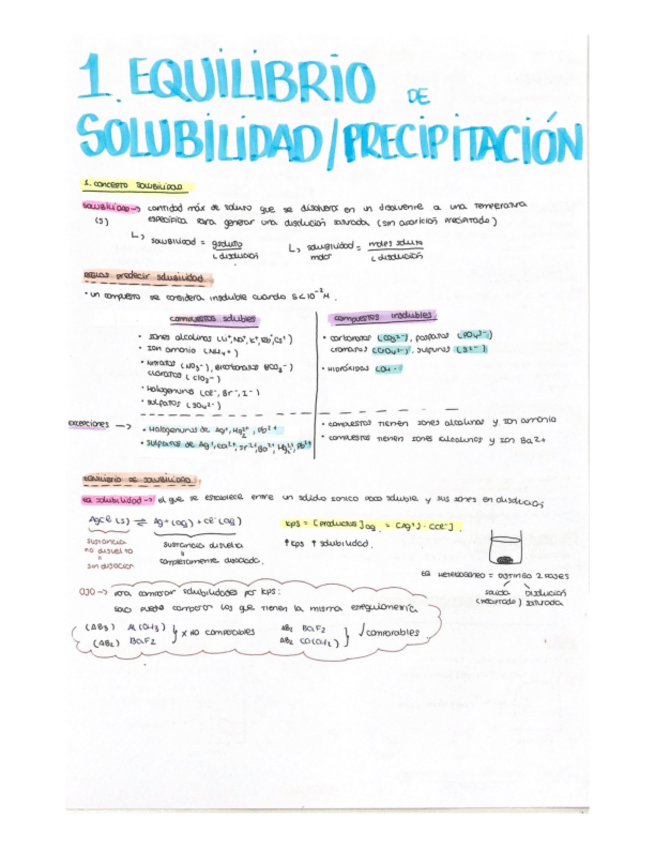 1. EQUILIBRIO DE
SOLUBILIDAD/PRECIPITACIÓN
1. CONCEPTO SOLUBILIDAD
SOLUBILIDAD → cantidad máx de soluto que se disolverá en un disolvente a una temperatura
(s) específica para generar una disolución saturada (sin aparición precipitado)
↳ solubilidad = g soluto / L disolución ↳ solubilidad molar = moles soluto / L disolución
REGLAS predecir solubilidad
• un compuesto se considera insoluble cuando S<10⁻²M.
compuestos solubles
compuestos insolubles
• Iones alcalinos (Li⁺, Na⁺, K⁺, Rb⁺, Cs⁺)
• Ion amonio (NH₄⁺)
• Nitratos (NO₃⁻), Bicarbonatos (HCO₃⁻)
cloratos (ClO₃⁻)
• Halogenuros (Cl⁻, Br⁻, I⁻)
• sulfatos (SO₄²⁻)
• carbonatos (CO₃²⁻), fosfatos (PO₄³⁻)
cromatos (CrO₄²⁻), sulfuros (S²⁻)
• HIDRÓXIDOS (OH⁻)
EXCEPCIONES →
• Halogenuros de Ag⁺, Hg₂²⁺, Pb²⁺
• Sulfatos de Ag⁺, Ca²⁺, Sr²⁺, Ba²⁺, Hg₂²⁺, Pb²⁺
• compuestos tienen iones alcalinos y ion amonio
• compuestos tienen iones alcalinos y ion Ba2+
EQUILIBRIO DE SOLUBILIDAD
EQ solubilidad → el que se establece entre un sólido iónico poco soluble y sus iones en disolución
AgCl (s) ⇌ Ag⁺ (aq) + Cl⁻ (aq)
sustancia
no disuelta
=
sin disociar
sustancia disuelta
completamente disociada.
Kps = [productos] aq = [Ag⁺] · [Cl⁻].
↑ Kps ↑ solubilidad.
EQ HETEROGÉNEO = DISTINGO 2 FASES
sólida disolución
(precipitado) saturada
OJO → para comparar solubilidades por Kps:
solo puedo comparar los que tienen la misma estequiometría.
(AB₃) Al(OH₃) (AB₂) BaF₂ } x NO COMPARABLES
AB₂ BaF₂ } ✓ comparables